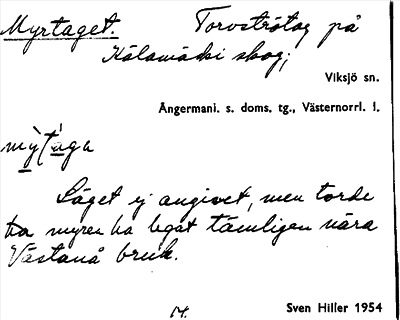 Myrtaget. Torvströtag på
skog;
Viksjö sn.
Ångermanl. s. doms. tg., Västernorrl. l.
Läget ej angivet, men torde
ha myren ha legat tämligen nära
Västanå bruk.
Sven Hiller 1954